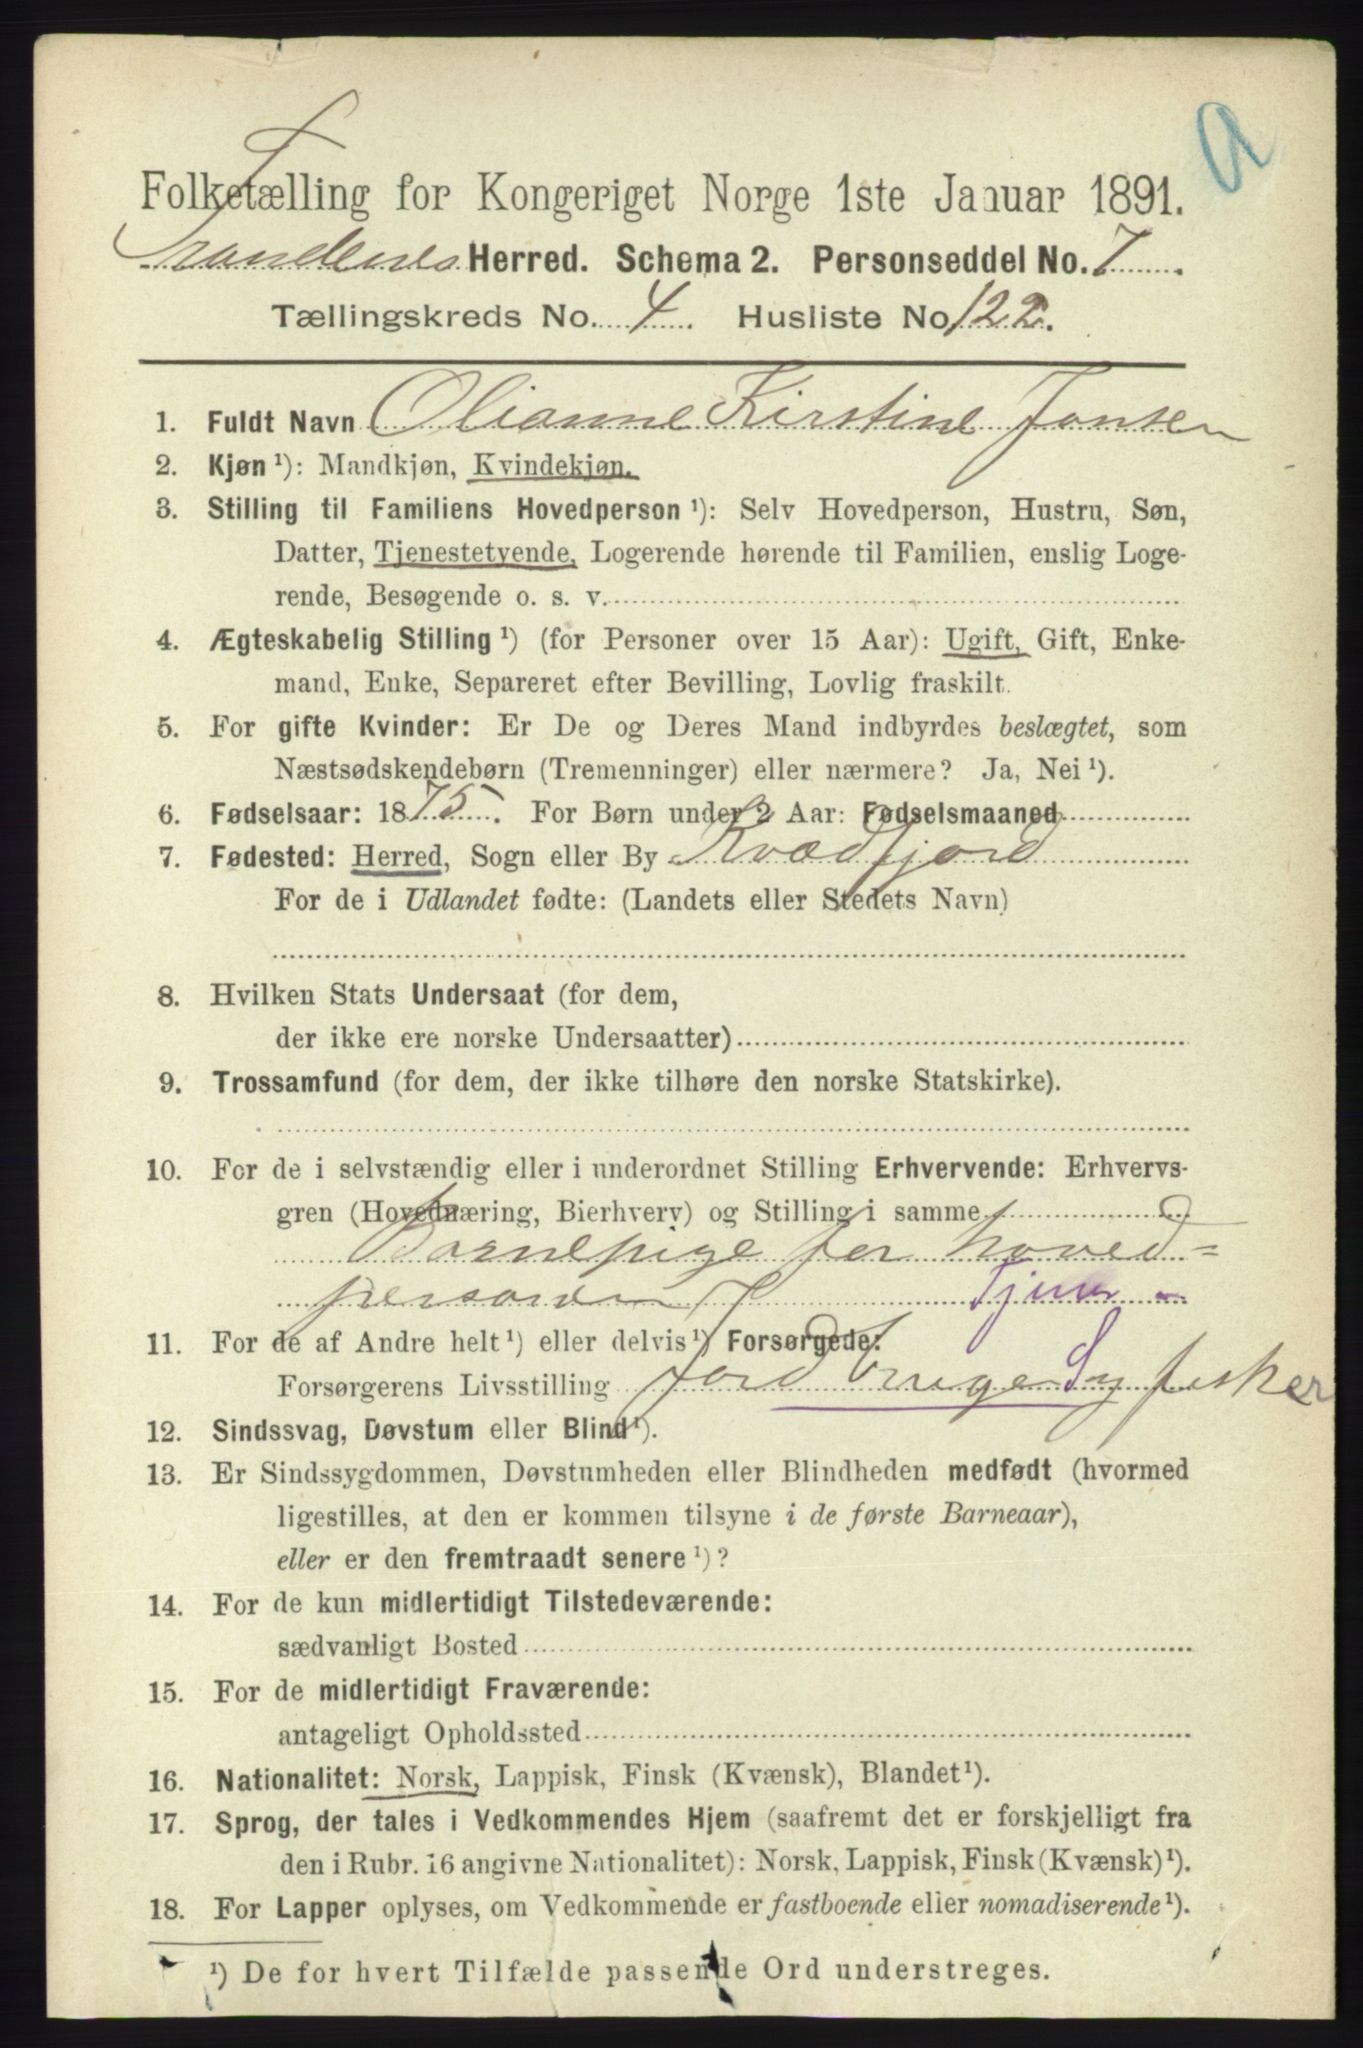 a
Folketælling for Kongeriget Norge 1ste Januar 1891.
Trondenes Herred. Schema 2. Personseddel No. 7
Tællingskreds No. 4. Husliste No 122.
1. Fuldt Navn Olianne Kirstine Jonsen
2. Kjøn ¹): Mandkjøn, Kvindekjøn.
3. Stilling til Familiens Hovedperson ¹): Selv Hovedperson, Hustru, Søn,
Datter, Tjenestetyende, Logerende hørende til Familien, enslig Loge-
rende, Besøgende o. s. v.
4. Ægteskabelig Stilling ¹) (for Personer over 15 Aar): Ugift, Gift, Enke-
mand, Enke, Separeret efter Bevilling, Lovlig fraskilt.
5. For gifte Kvinder: Er De og Deres Mand indbyrdes beslægtet, som
Næstsødskendebørn (Tremenninger) eller nærmere? Ja, Nei ¹).
6. Fødselsaar: 1875. For Børn under 2 Aar: Fødselsmaaned
7. Fødested: Herred, Sogn eller By Kvædfjord
For de i Udlandet fødte: (Landets eller Stedets Navn)
8. Hvilken Stats Undersaat (for dem,
der ikke ere norske Undersaatter)
9. Trossamfund (for dem, der ikke tilhøre den norske Statskirke).
10. For de i selvstændig eller i underordnet Stilling Erhvervende: Erhvervs-
gren (Hovednæring, Bierhverv) og Stilling i samme
Barnepige for hoved=
personen Tjen -
11. For de af Andre helt ¹) eller delvis ¹) Forsørgede:
Forsørgerens Livsstilling Jordbruger og fisker
12. Sindssvag, Døvstum eller Blind ¹).
13. Er Sindssygdommen, Døvstumheden eller Blindheden medfødt (hvormed
ligestilles, at den er kommen tilsyne i de første Barneaar),
eller er den fremtraadt senere ¹)?
14. For de kun midlertidigt Tilstedeværende:
sædvanligt Bosted
15. For de midlertidigt Fraværende:
antageligt Opholdssted
16. Nationalitet: Norsk, Lappisk, Finsk (Kvænsk), Blandet ¹).
17. Sprog, der tales i Vedkommendes Hjem (saafremt det er forskjelligt fra
den i Rubr. 16 angivne Nationalitet): Norsk, Lappisk, Finsk (Kvænsk) ¹).
18. For Lapper oplyses, om Vedkommende er fastboende eller nomadiserende ¹).
¹) De for hvert Tilfælde passende Ord understreges.